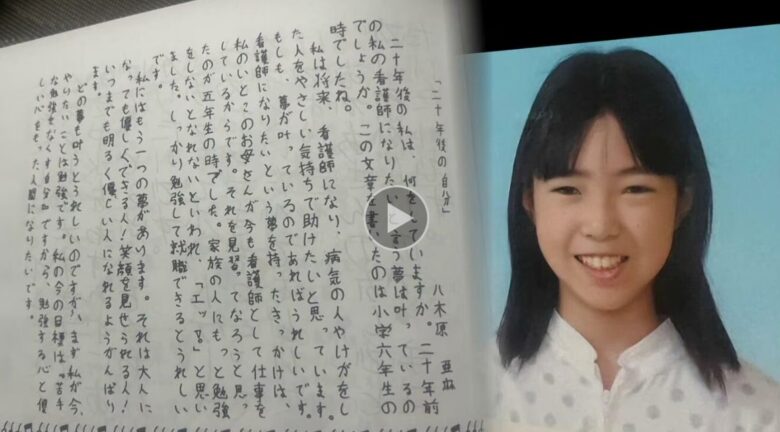 「二十年後の自分」
八木原 亜麻
二十年後の私は、何をしていますか。二十年前
の私の看護師になりたいと言う夢は叶っているの
でしょうか。この文章を書いたのは小学六年生の
時でしたね。
私は将来、看護師になり、病気の人やけがをし
た人をやさしい気持ちで助けたいと思っています。
もしも、夢が叶っているのであればうれしいです。
看護師になりたいという夢を持ったきっかけは、
私のいとこのお母さんが今も看護師として仕事を
しているからです。それを見習ってなろうと思っ
たのが五年生の時でした。家族の人にもっと勉強
をしないとなれないといわれ、「エッ?」と思い
ました。しっかり勉強して就職できるとうれしい
です。
私にはもう一つの夢があります。それは大人に
なっても優しくできる人!笑顔を見せられる人!
いつまでも明るく優しい人になれるようがんばり
ます。
どの夢も叶うとうれしいのですが、まず私が今、
やりたいことは勉強です。私の今の目標は"苦手
な勉強をなくす"ですから、勉強する心と優
しい心をもった人間になりたいです。